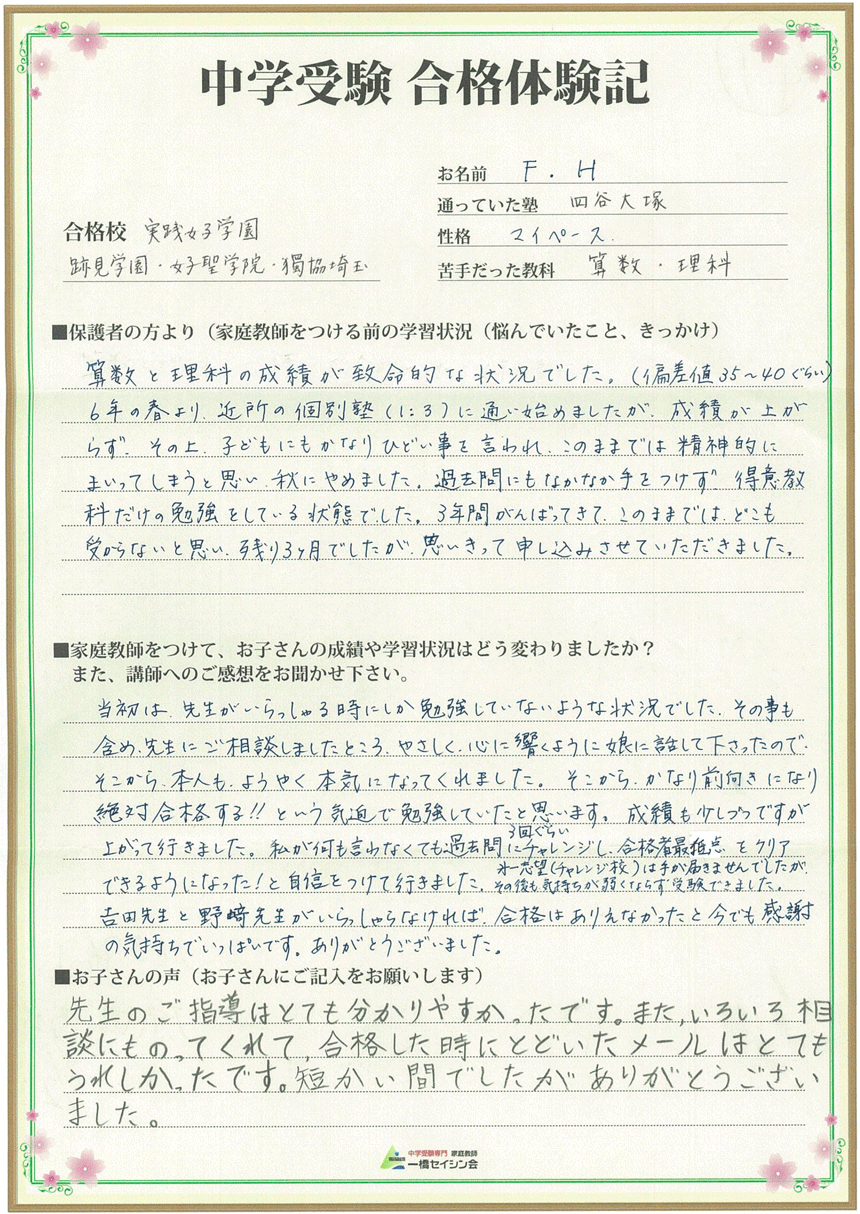 中学受験 合格体験記
お名前 F.H
通っていた塾 四谷大塚
合格校 実践女子学園
性格 マイペース.
跡見学園・女子聖学院・獨協埼玉
苦手だった教科 算数・理科
■保護者の方より（家庭教師をつける前の学習状況（悩んでいたこと、きっかけ）
算数と理科の成績が致命的な状況でした。(偏差値35～40ぐらい)
6年の春より、近所の個別塾(1:3)に通い始めましたが、成績が上が
らず、その上、子どもにもかなりひどい事を言われ、このままでは精神的に
まいってしまうと思い、秋にやめました。過去問にもなかなか手をつけず、得意教
科だけの勉強をしている状態でした。3年間がんばってきて、このままでは、どこも
受からないと思い、残り3ヶ月でしたが、思いきって申し込みさせていただきました。
■家庭教師をつけて、お子さんの成績や学習状況はどう変わりましたか？
また、講師へのご感想をお聞かせ下さい。
当初は、先生がいらっしゃる時にしか勉強していないような状況でした。その事も
含め、先生にご相談しましたところ、やさしく、心に響くように娘に話して下さったので、
そこから、本人も、ようやく本気になってくれました。そこから、かなり前向きになり
絶対合格する!!という気迫で勉強していたと思います。成績も少しづつですが
上がって行きました。私が何も言わなくても過去問に3回ぐらいチャレンジし、合格者最低点をクリア
できるようになった!と自信をつけて行きました。第一志望(チャレンジ校)は手が届きませんでしたが、
その後も気持ちが弱くならず受験できました。
吉田先生と野崎先生がいらっしゃらなければ、合格はありえなかったと今でも感謝
の気持ちでいっぱいです。ありがとうございました。
■お子さんの声（お子さんにご記入をお願いします）
先生のご指導はとても分かりやすかったです。また,いろいろ相
談にものってくれて,合格した時にとどいたメールはとても
うれしかったです。短かい間でしたがありがとうござい
ました。
中学受験専門 家庭教師
一橋セイシン会